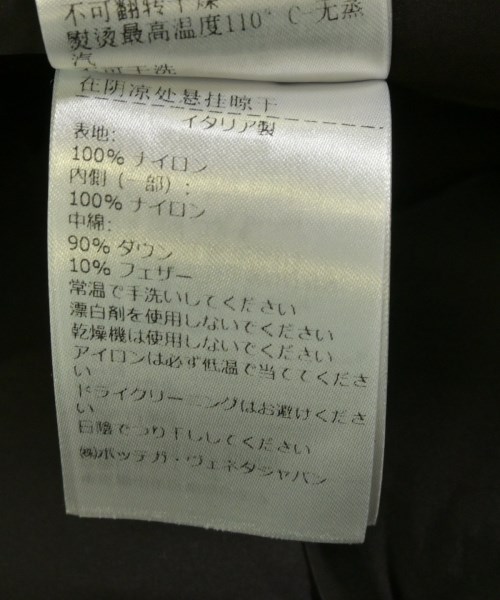 不可翻转干燥
熨烫最高温度110°C-无蒸
汽
不可干洗
在阴凉处悬挂晾干
イタリア製
表地:
100% ナイロン
内側（一部）:
100% ナイロン
中綿:
90% ダウン
10% フェザー
常温で手洗いしてください
漂白剤を使用しないでください
乾燥機は使用しないでください
アイロンは必ず低温で当ててくださ
い
ドライクリーニングはお避けくださ
い
日陰でつり干ししてください
㈱ボッテガ・ヴェネタジャパン